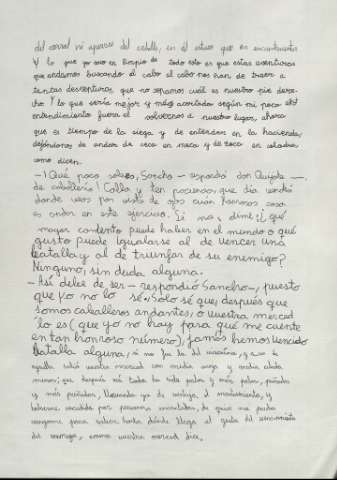 del corral ni apearse del caballo, en él estuvo que es encantamento
Y lo que yo saco en limpio de todo esto es que estas aventuras
que andamos buscando al cabo al cabo nos han de traer a
tantas desventuras que no sepamos cuál es nuestro pie dere-
cho. Y lo que sería mejor y más acertado según mi poco
entendimiento fuera el volvernos a nuestro lugar, ahora
que es tiempo de la siega y de entender en la hacienda,
dejándonos de andar de ceca en meca y de zoca en colodra
como dicen.
-¡Qué poco sabes, Sancho - respondió don Quijote -
de caballería! Calla y ten paciencia que día vendrá
donde veas por vista de ojos cuán honrosa cosa
es andar en este ejercicio. Si no, dime: ¿qué
mayor contento puede haber en el mundo o qué
gusto puede igualarse al de vencer una
batalla y al de triunfar de su enemigo?
Ninguno, sin duda alguna.
- Así debe de ser - respondió Sancho -, puesto
que yo no lo sé. Solo sé que, después que
somos caballeros andantes, o vuestra merced
lo es (que yo no hay para qué me cuente
en tan honroso número), jamás hemos vencido
batalla alguna, si no fue la del vizcaíno, y aun de
aquella salió vuestra merced con media oreja y media celada
menos; que después acá todo ha sido palos y más palos, puñadas
y más puñadas, llevando yo de ventaja el manteamiento, y
haberme sucedido por personas encantadas, de quien no puedo
vengarme para saber hasta dónde llega el gusto del vencimiento
del enemigo, como vuestra merced dice.